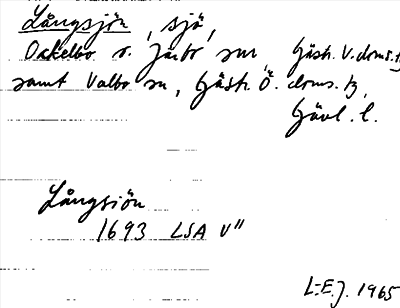 Långsjön, sjö,
Ockelbo o. Järbo snr, Gästr. V. doms. tg
samt Valbo sn, Gästr. Ö. doms. tg,
Gävl. l.
Långsiön
1693 LSA V"
L-E.J. 1965